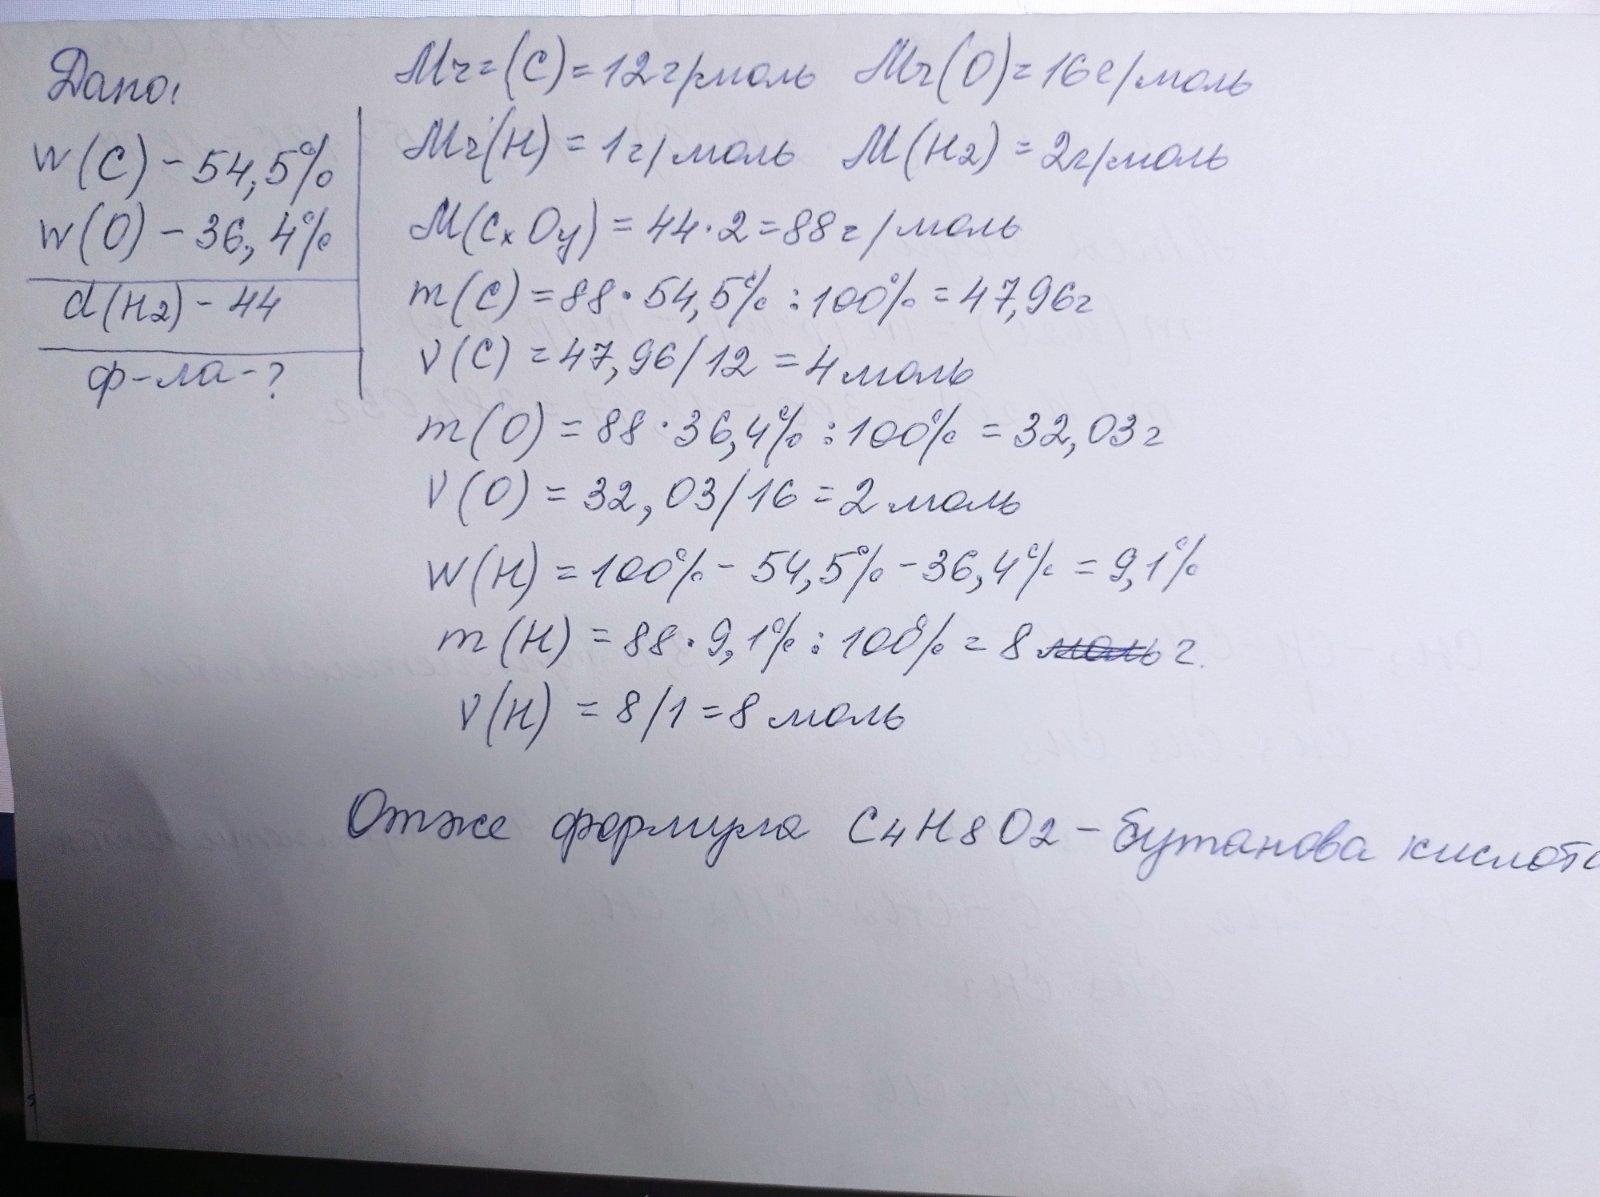 Дано:
W(C) - 54,5%
W(O) - 36,4%
d(H2) - 44
ф-ла - ?
Mr=(C) = 12 г/моль Mr(O) = 16 г/моль
Mr(H) = 1 г/моль M(H2) = 2 г/моль
M(CxOy) = 44·2 = 88 г/моль
m(C) = 88·54,5% : 100% = 47,96 г
ν(C) = 47,96/12 = 4 моль
m(O) = 88·36,4% : 100% = 32,03 г
ν(O) = 32,03/16 = 2 моль
W(H) = 100% - 54,5% - 36,4% = 9,1%
m(H) = 88·9,1% : 100% = 8 моль г.
ν(H) = 8/1 = 8 моль
Отже формула C4H8O2 - бутанова кислота